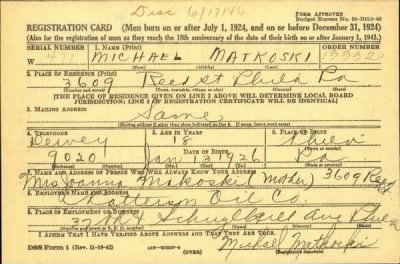 Disc 6/17/46
FORM APPROVED
REGISTRATION CARD (Men born on or after July 1, 1924, and on or before December 31, 1924)
(Also for the registration of men as they reach the 18th anniversary of the date of their birth on or after January 1, 1943.)
SERIAL NUMBER 1. NAME (Print) ORDER NUMBER
W 477 MICHAEL MATKOSKI
(First) (Middle) (Last)
2. PLACE OF RESIDENCE (Print)
3609 Reed St Phila Pa
(Number and street) (Town, township, village, or city) (County) (State)
[THE PLACE OF RESIDENCE GIVEN ON LINE 2 ABOVE WILL DETERMINE LOCAL BOARD
JURISDICTION; LINE 2 OF REGISTRATION CERTIFICATE WILL BE IDENTICAL]
3. MAILING ADDRESS
Same
4. TELEPHONE 5. AGE IN YEARS 6. PLACE OF BIRTH
Dewey 18 Phila
DATE OF BIRTH (Town or county)
9020 Jan 13 1926 Pa
(Exchange) (Number) (Mo.) (Day) (Yr.) (State or country)
7. NAME AND ADDRESS OF PERSON WHO WILL ALWAYS KNOW YOUR ADDRESS
Mrs Joanna Makoski (mother) 3609 Reed
8. EMPLOYER'S NAME AND ADDRESS
Patterson Oil Co.
9. PLACE OF EMPLOYMENT OR BUSINESS
37th & Schuylkill Ave Phila
(Number and street or R. F. D. number) (Town) (County) (State)
I AFFIRM THAT I HAVE VERIFIED ABOVE ANSWERS AND THAT THEY ARE TRUE.
DSS Form 1 (Rev. 11-16-42) (OVER) Michael Matkoski